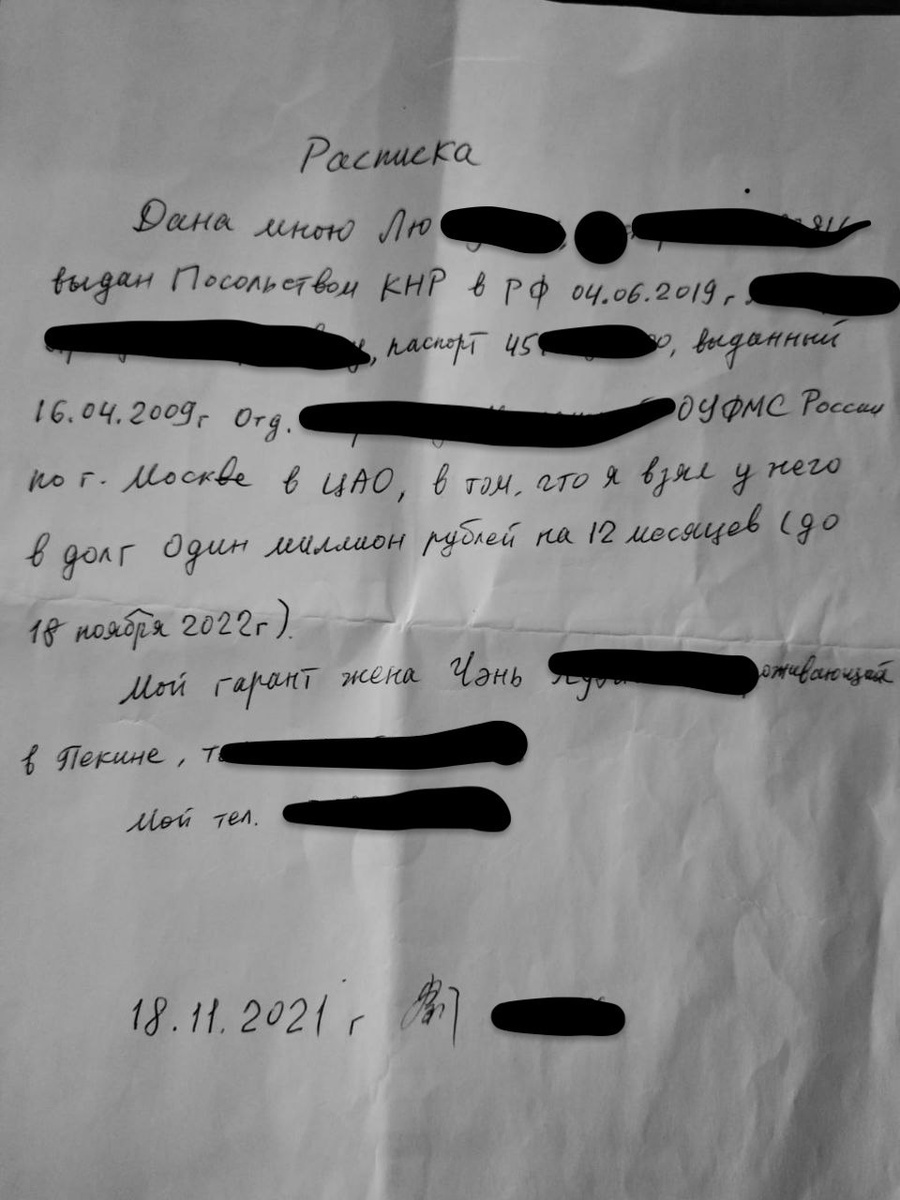 Расписка
Дана мною Лю
выдан Посольством КНР в РФ 04.06.2019г.
, паспорт 45 0, выданный
16.04.2009г Отд. ОУФМС России
по г. Москве в ЦАО, в том, что я взял у него
в долг один миллион рублей на 12 месяцев (до
18 ноября 2022г).
Мой гарант жена Чэнь оживающий
в Пекине, т
Мой тел.
18.11.2021 г